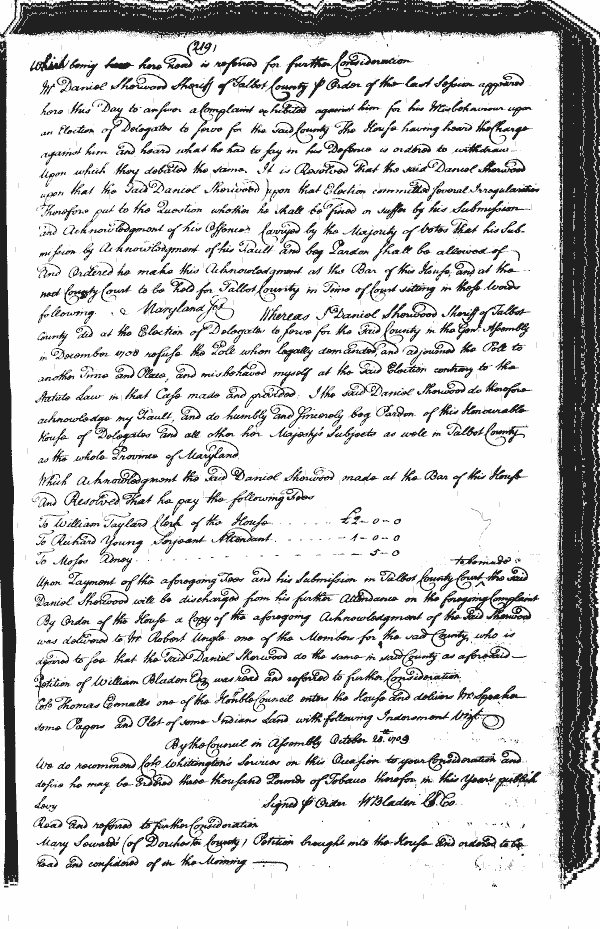 (219)
Which being here read is referred for further Consideration
Mr Daniel Sherwood Sheriff of Talbot County p Order of the last Session appeared
here this Day to answer a Complaint exhibited against him for his Misbehaviour upon
an Election of Delegates to serve for the said County The House having heard the Charge
against him and heard what he had to say in his Defence is ordered to withdraw
Upon which they debated the same. It is Resolved that the said Daniel Sherwood
upon that the said Daniel Sherwood upon that Election committed several Irregularities
Therefore put to the Question whether he shall be fined or suffer by his Submission
and Acknowledgment of his Offence. Carryed by the Majority of Votes that his Sub-
mission by Acknowledgment of his Fault and beg Pardon shall be allowed of
And Ordered he make this Acknowledgment at the Bar of this House, and at the
next County Court to be held for Talbot County in Time of Court sitting in these Words
following. Maryland Sc Whereas I Daniel Sherwood Sheriff of Talbot
County did at the Election of Delegates to serve for the said County in the Genl Assembly
in December 1708 refuse the Pole when legally demanded, and adjourned the Pole to
another Time and Place, and misbehaved myself at the said Election contrary to the
Statute Law in that Case made and provided. I the said Daniel Sherwood do therefore
acknowledge my Fault, and do humbly and sincerely beg Pardon of this Honourable
House of Delegates and all other her Majestys Subjects as well in Talbot County
as the whole Province of Maryland
Which Acknowledgment the said Daniel Sherwood made at the Bar of this House
And Resolved that he pay the following Fees
To William Taylard Clerk of the House £2-0-0
To Richard Young Serjeant Attendant 1-0-0
To Moses Adney 5-0
to be made
Upon Payment of the aforegoing Fees and his Submission in Talbot County Court the said
Daniel Sherwood will be discharged from his further Attendance on the foregoing Complaint
By Order of the House a Copy of the aforegoing Acknowledgment of the said Sherwood
was delivered to Mr Robert Ungle one of the Members for the said County, who is
agreed to see that the said Daniel Sherwood do the same in said County as aforesaid
Petition of William Bladen Esq was read and referred to further Consideration
Colo Thomas Ennalls one of the Honble Council enters the House and delivers Mr Speaker
some Papers and Plot of some Indians Land with following Indorsement Vizt
By the Council in Assembly October 28th 1709
We do recommend Colo Whitington's Services on this Occasion to your Consideration and
desire he may be Ordered three thousand Pounds of Tobacco therefor in this Year's publick
Levy Signed p Order W Bladen Cl Co.
Read and referred to further Consideration
Mary Sewards (of Dorchester County) Petition brought into the House and ordered to be
read and considered of in the Morning